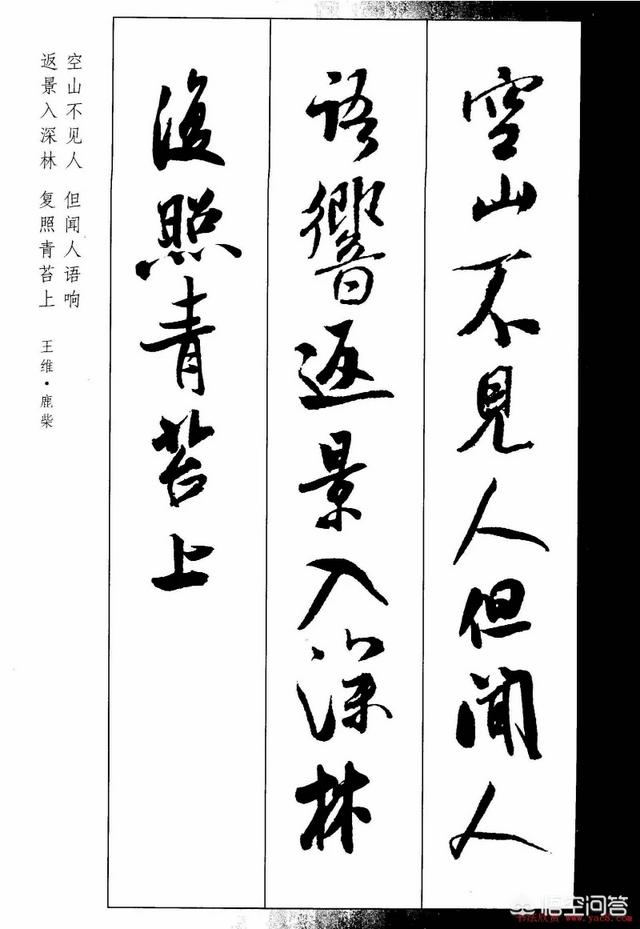 空山不見人但聞人
語響返景入深林
復照青苔上
空山不见人 但闻人语响
返景入深林 复照青苔上 王维·鹿柴
悟空问答
书法欣赏 www.yac8.com